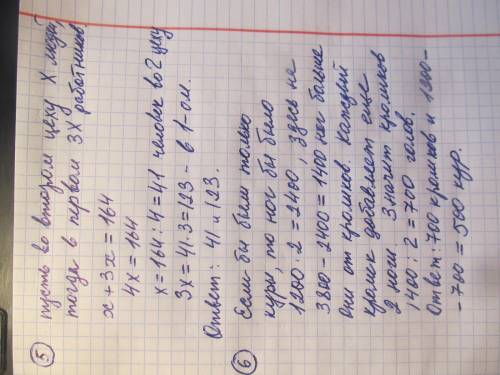 5 пусть во втором цеху x людей,
тогда в первом 3x работников.
x + 3x = 164
4x = 164
x = 164 : 4 = 41 человек во 2 цеху
3x = 41 · 3 = 123 - в 1-ом.
Ответ: 41 и 123.
6 Если бы были только
куры, то ног бы было
1200 · 2 = 2400, здесь не
3800 - 2400 = 1400 ног больше
они от кроликов. Каждый
кролик добавляет еще
2 ноги Значит кроликов
1400 : 2 = 700 голов.
Ответ: 700 кроликов и 1200 -
- 700 = 500 кур.